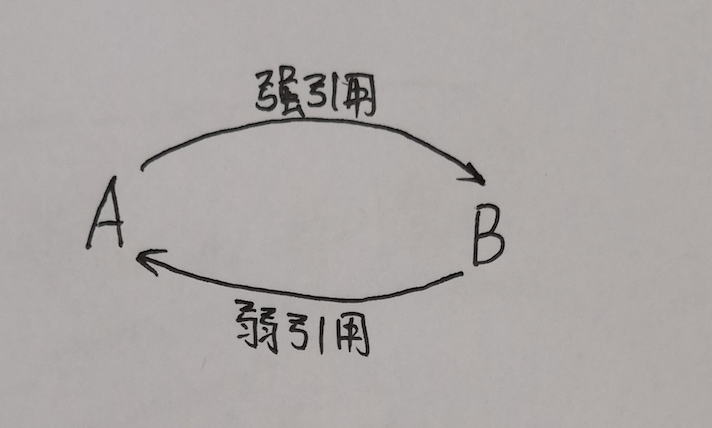 强引用
A
B
弱引用